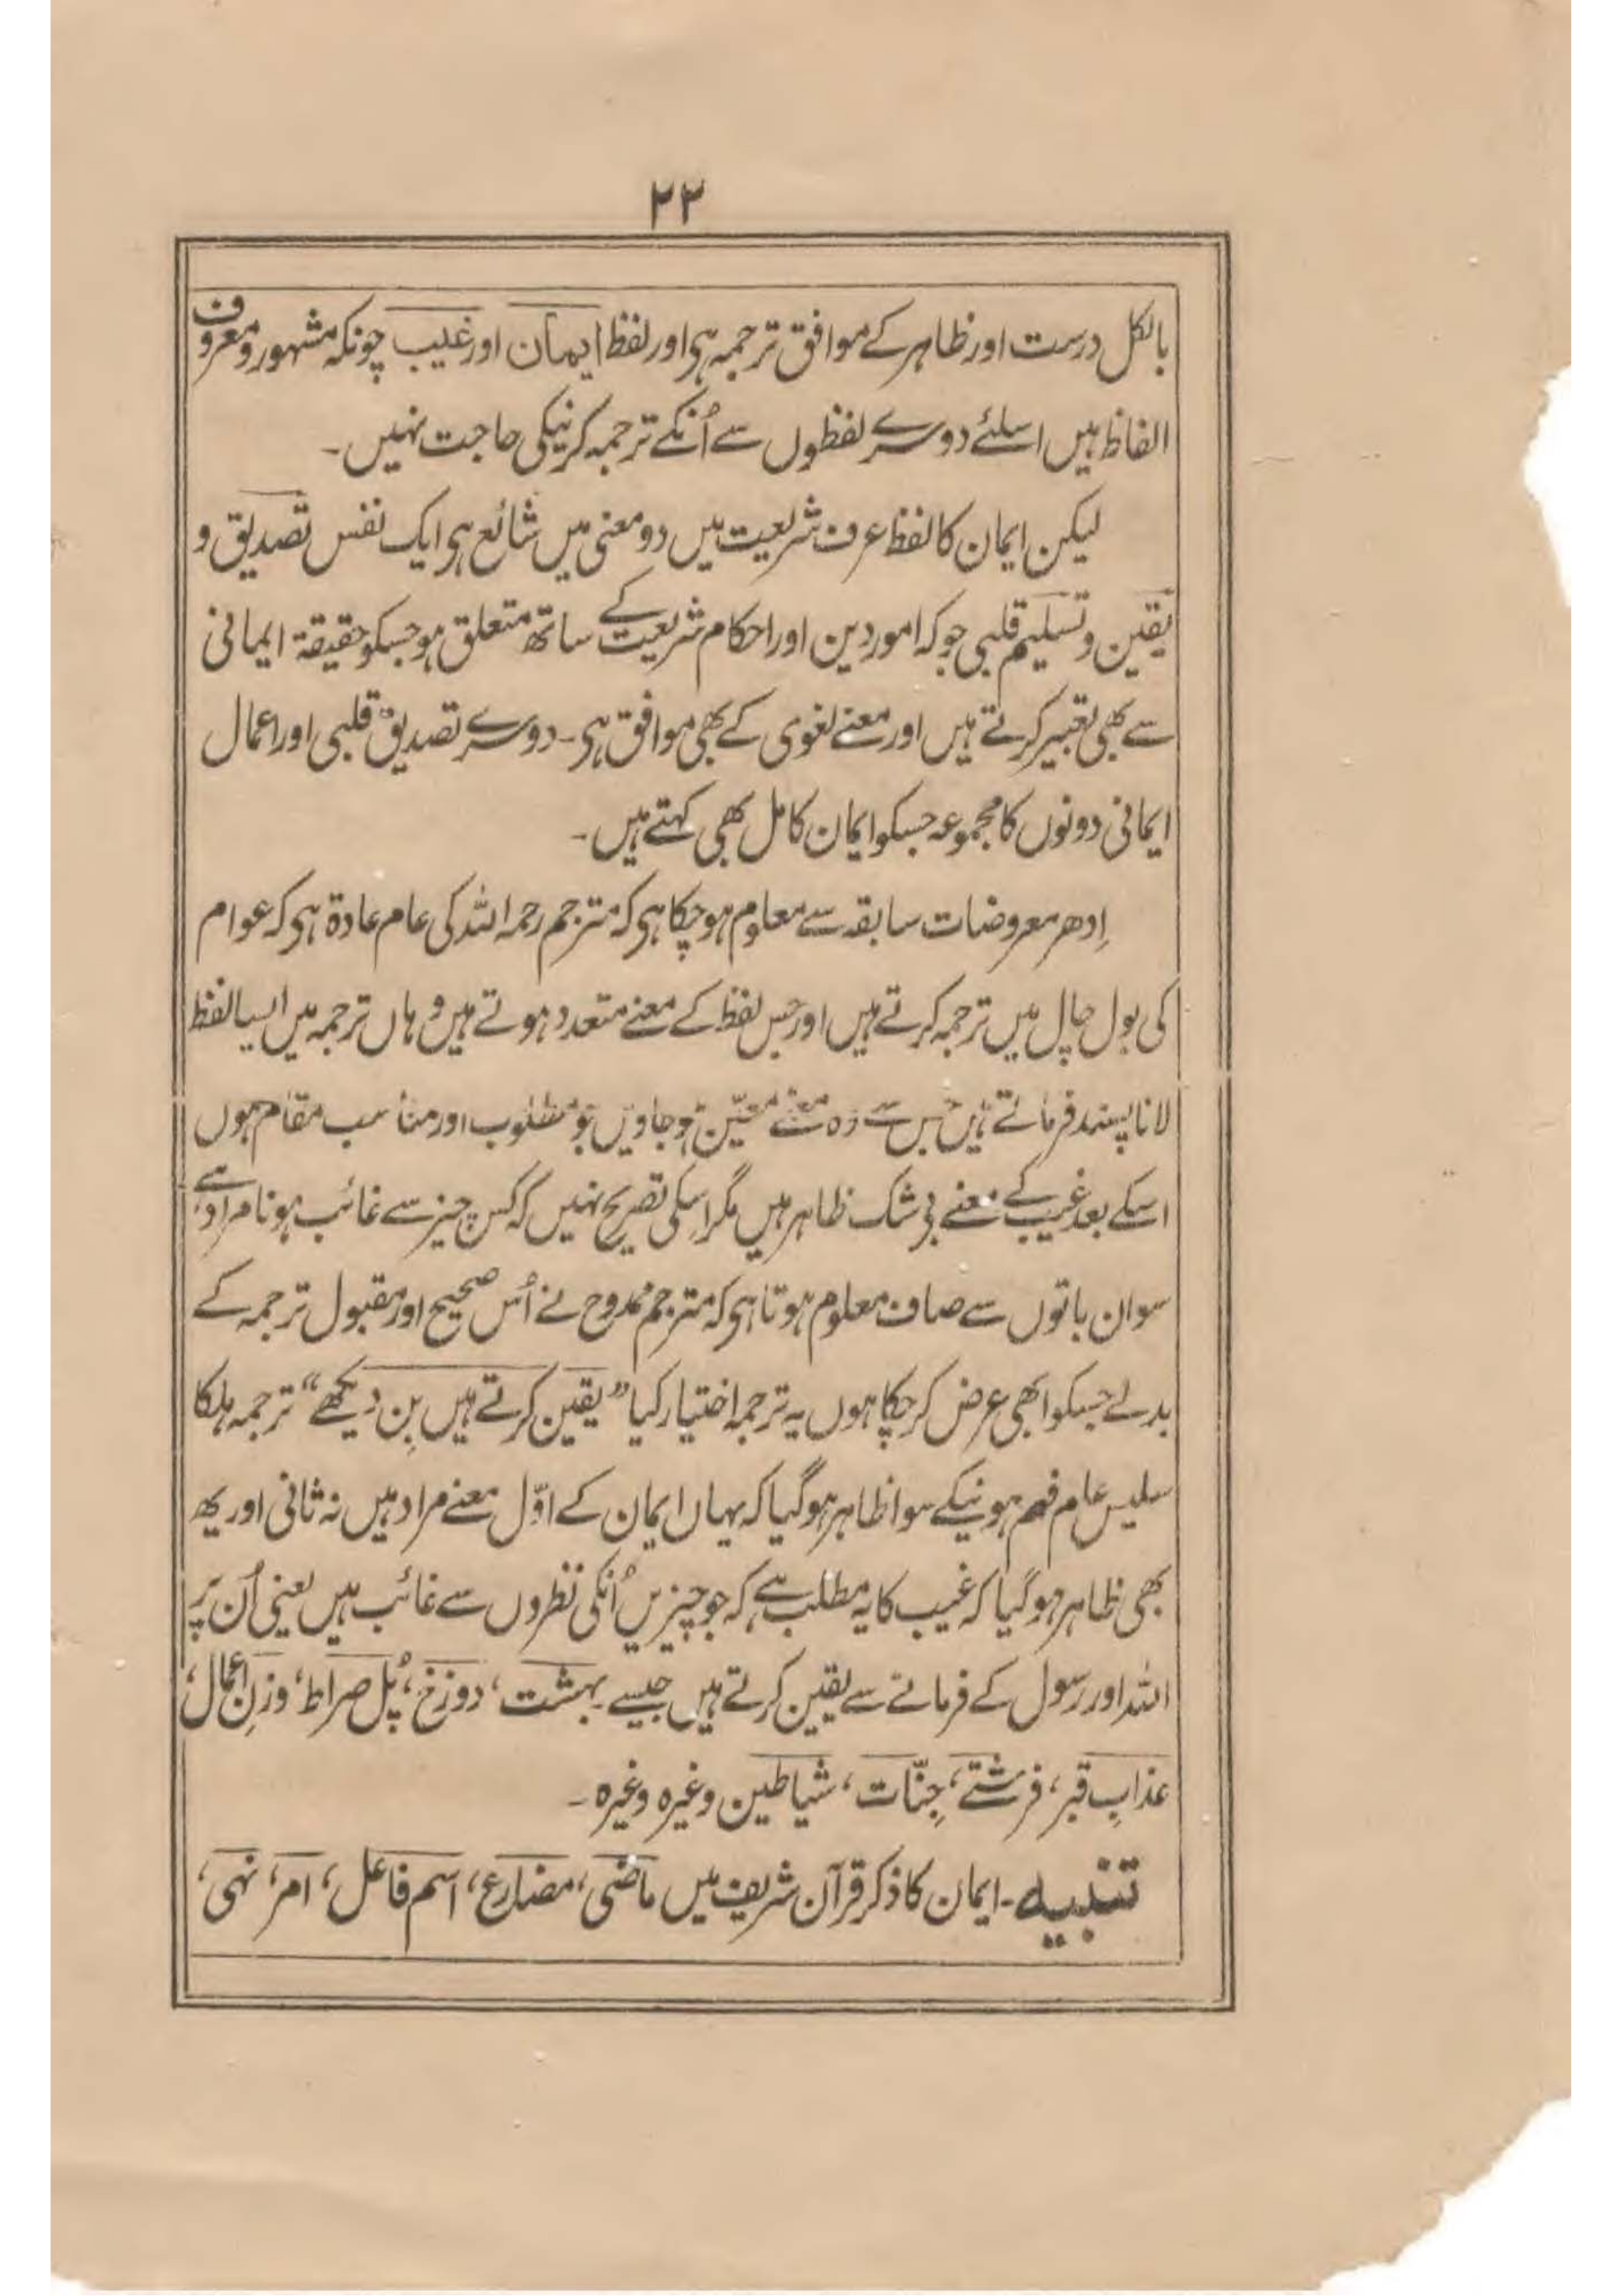 ۲۲
بالکل درست اور ظاہر کے موافق ترجمہ ہی اور لفظ ایمان اور غیب چونکہ مشہور و معروف
الفاظ ہیں اسلئے دوسرے لفظوں سے اُنکے ترجمہ کرنیکی حاجت نہیں۔
لیکن ایمان کا لفظ عرف شریعت میں دو معنی میں شائع ہی ایک نفس تصدیق و
یقین و تسلیم قلبی جو کہ امور دین اور احکام شریعت کے ساتھ متعلق ہو جسکو حقیقۃ ایمانی
سے بھی تعبیر کرتے ہیں اور معنے لغوی کے بھی موافق ہی۔ دوسرے تصدیق قلبی اور اعمال
ایمانی دونوں کا مجموعہ جسکو ایمان کامل بھی کہتے ہیں۔
اِدھر معروضات سابقہ سے معلوم ہو چکا ہی کہ مترجم رحمہ اللہ کی عام عادۃ ہی کہ عوام
کی بول چال میں ترجمہ کرتے ہیں اور جس لفظ کے معنے متعدد ہوتے ہیں وہاں ترجمہ میں ایسا لفظ
لانا پسند فرماتے ہیں جس سے وہ معنے معیّن ہو جاویں جو مطلوب اور مناسب مقام ہوں
اسکے بعد غیب کے معنے بی شک ظاہر ہیں مگر اسکی تصریح نہیں کہ کس چیز سے غائب ہونا مراد ہے
سو ان باتوں سے صاف معلوم ہوتا ہی کہ مترجم ممدوح نے اُس صحیح اور مقبول ترجمہ کے
بدلے جسکو ابھی عرض کر چکا ہوں یہ ترجمہ اختیار کیا ”یقین کرتے ہیں بِن دیکھے“ ترجمہ ہلکا
سلیس عام فہم ہونیکے سوا ظاہر ہو گیا کہ یہاں ایمان کے اوّل معنے مراد ہیں نہ ثانی اور یہ
بھی ظاہر ہو گیا کہ غیب کا یہ مطلب ہے کہ جو چیزیں اُنکی نظروں سے غائب ہیں یعنی اُن پر
اللہ اور رسول کے فرمانے سے یقین کرتے ہیں جیسے بہشت، دوزخ، پُل صراط، وزنِ اعمال،
عذابِ قبر، فرشتے، جِنّات، شیاطین وغیرہ وغیرہ۔
تنبیہ۔ ایمان کا ذکر قرآن شریف میں ماضی، مضارع، اسم فاعل، امر، نہی،